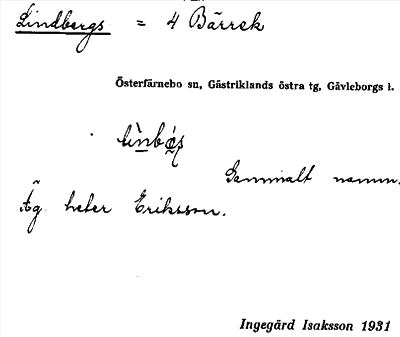 Lindbergs = 4 Bärrek
Österfärnebo sn, Gästriklands östra tg, Gävleborgs l.
Gammalt namn.
Äg. heter Eriksson.
Ingegärd Isaksson 1931